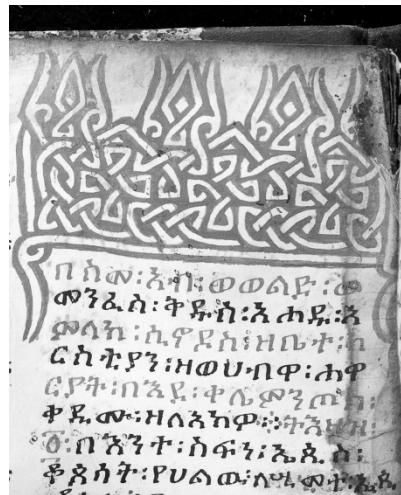 በስመ፡አብ፡ወወልድ፡ወ
መንፈስ፡ቅዱስ፡አሐዱ፡አ
ምላክ፡ሲኖዶስ፡ዘቤተ፡ክ
ርስቲያን፡ዘወሀብዋ፡ሐዋ
ርያት፡በእደ፡ቀሌምንጦስ፡
ቀዲሙ፡ዘለአከዎ፡ትእዛዝ፡
፩፡በእንተ፡ስፍን፡ኤጲስ፡
ቆጶሳት፡የሀልዉ፡ለሢመተ፡ኤጲ